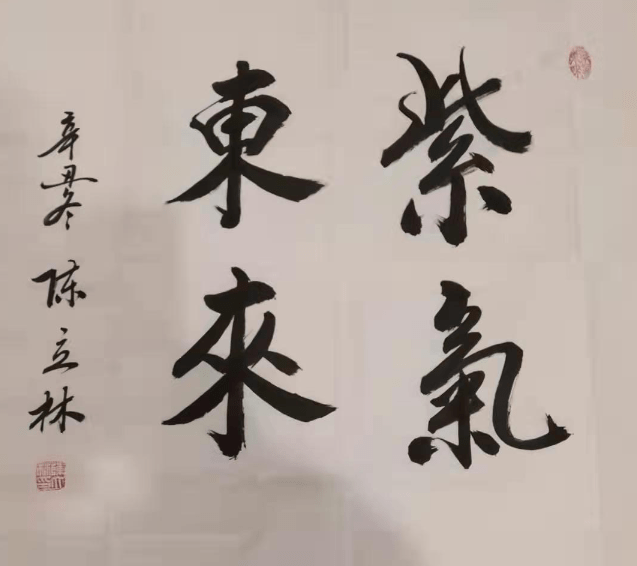 紫氣
東來
辛丑冬 陈立林